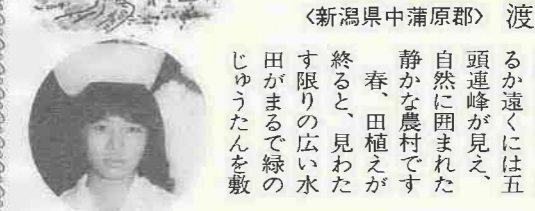 〈新潟県中蒲原郡〉 渡
るか遠くには五
頭連峰が見え、
自然に囲まれた
静かな農村です
春、田植えが
終ると、見わた
す限りの広い水
田がまるで緑の
じゅうたんを敷